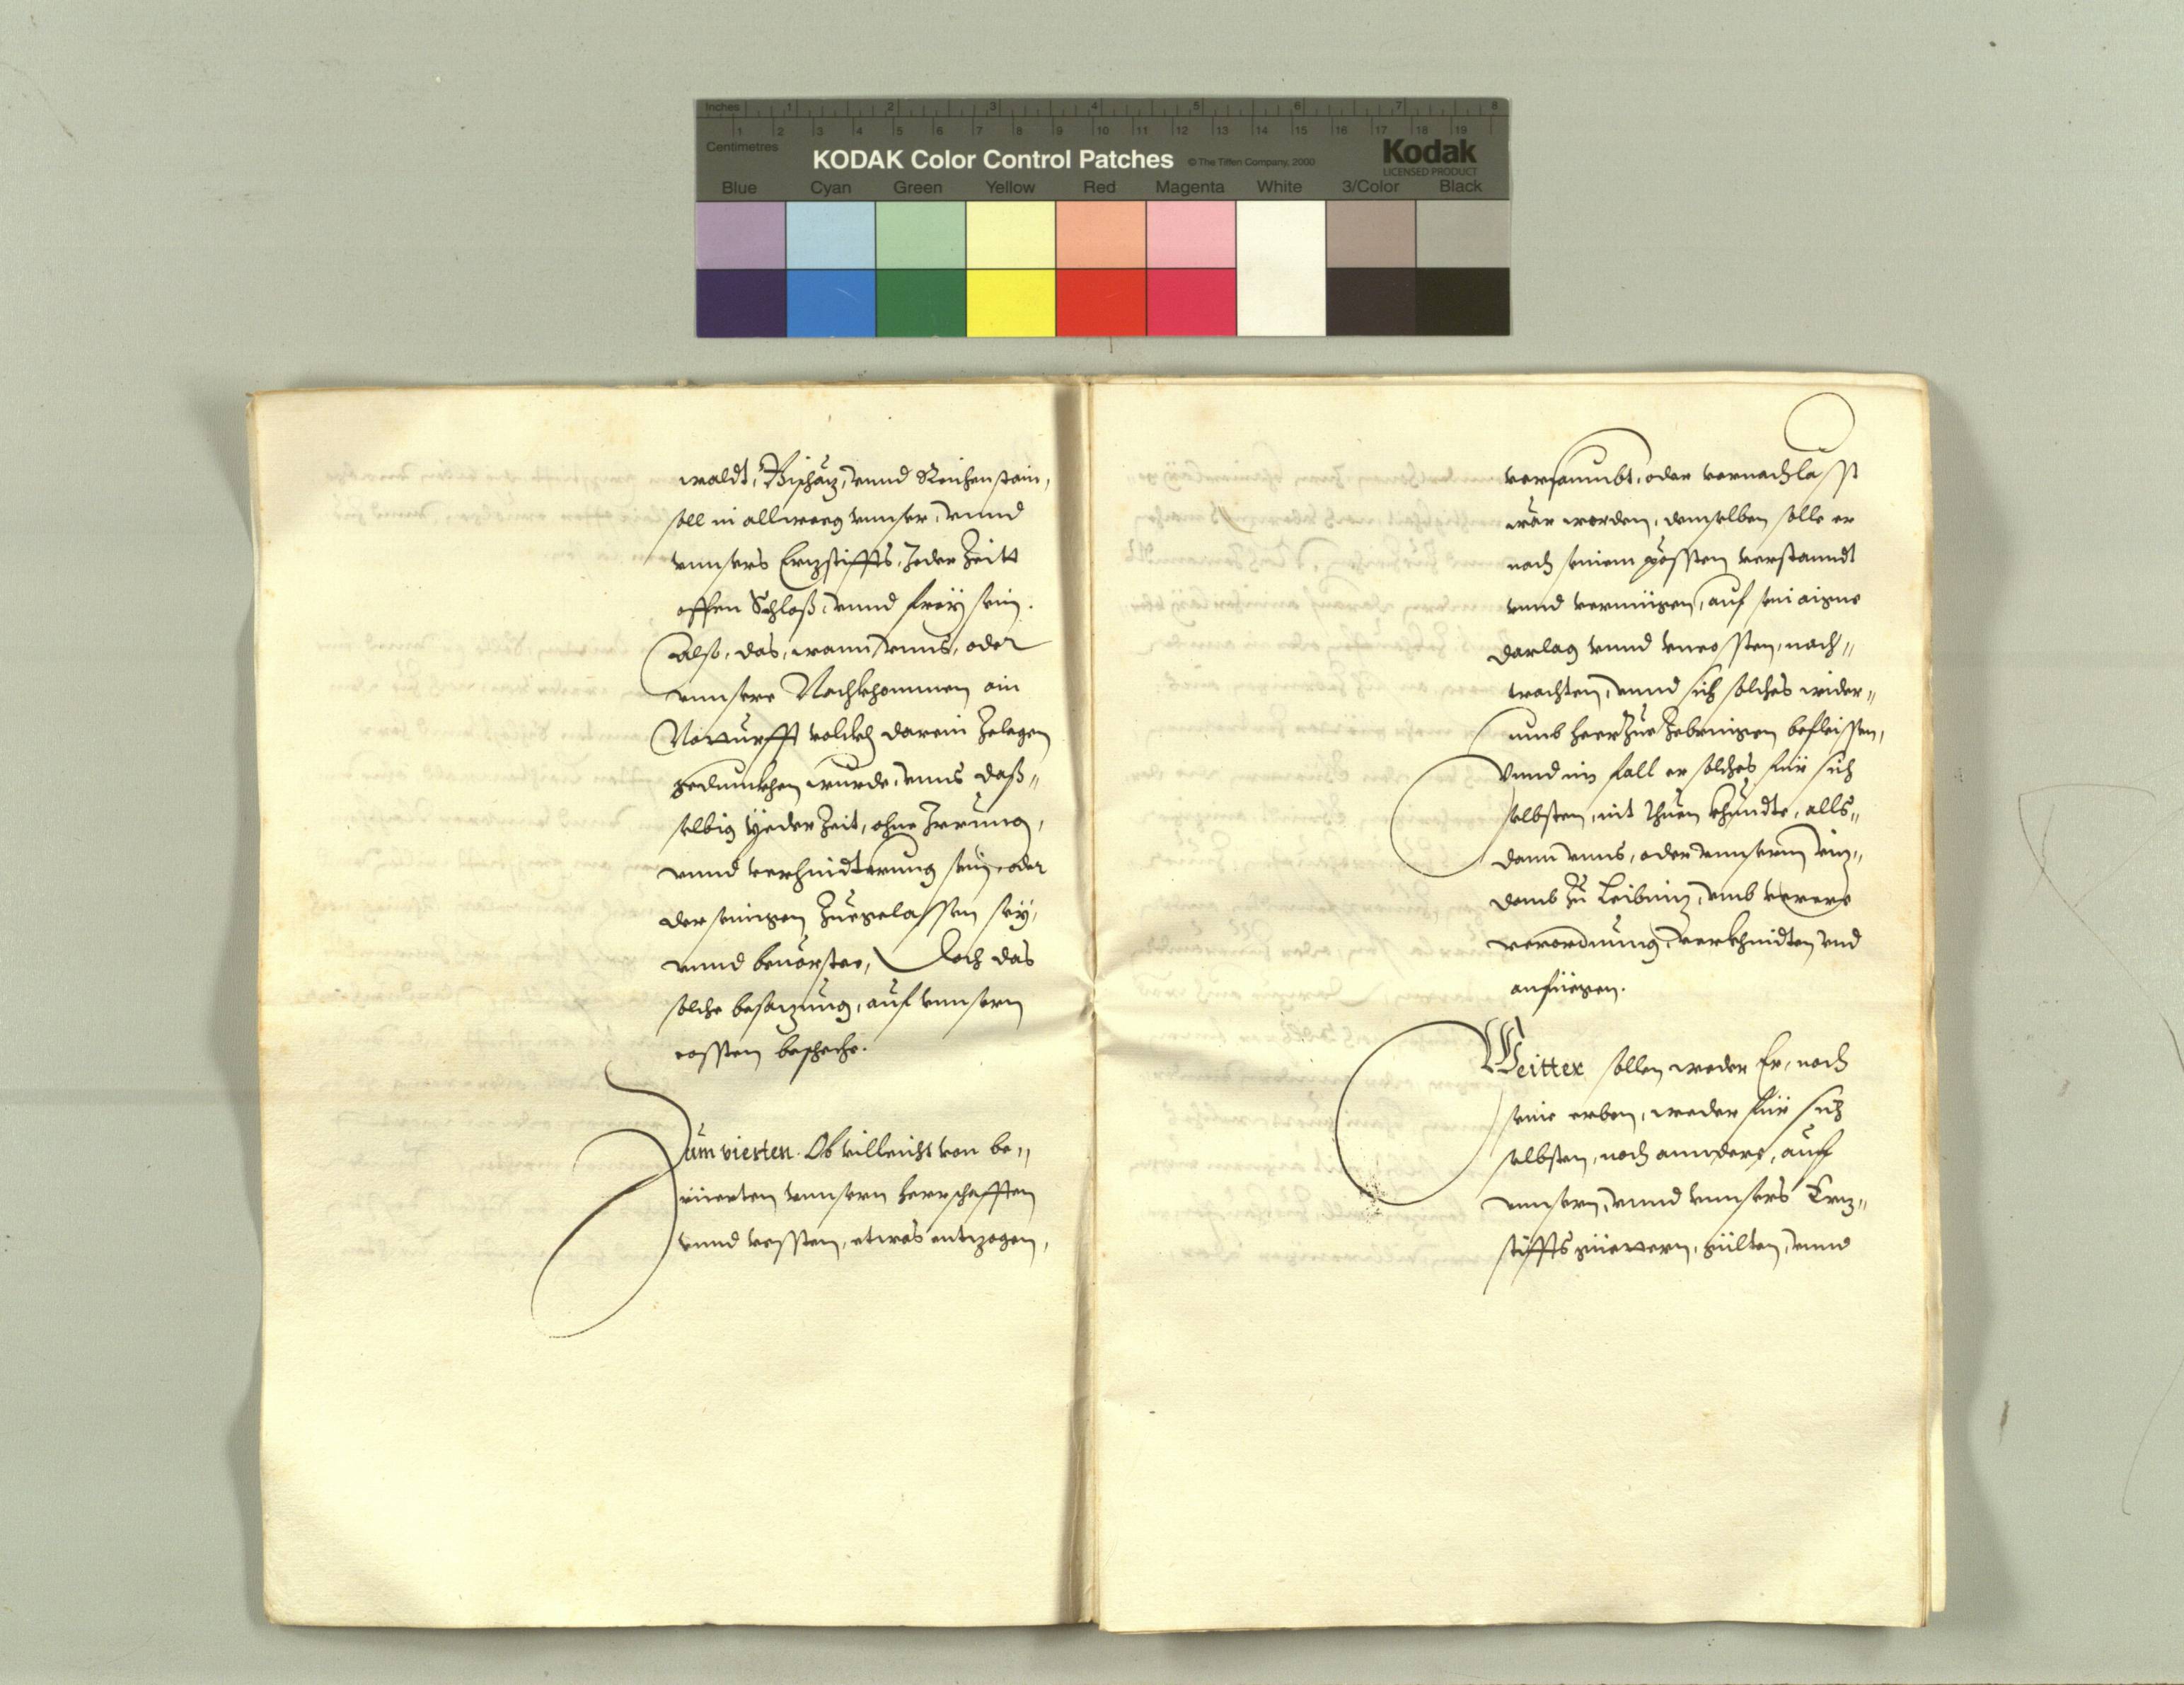 Inches 1 2 3 4 5 6 7 8
Centimetres 1 2 3 4 5 6 7 8 9 10 11 12 13 14 15 16 17 18 19
KODAK Color Control Patches © The Tiffen Company, 2000 Kodak
LICENSED PRODUCT
Blue Cyan Green Yellow Red Magenta White 3/Color Black
waldt, Pischätz, vnnd Reichenstain,
soll in allweeg vnnser, vnnd
vnnsers Ertzstiffts, Jeder Zeitt
offen Schloß, vnnd freÿ sein.
Also, das, wann vnns, oder
vnnsere Nachkhommen ain
Notturfft volckh darein Zelegen
gedunckhen wurde, vnns daß„
selbig Yeder Zeit, ohne Irrung,
vnnd verhindterung sein, oder
der seinigen Zuegelassen seÿ,
vnnd beuorstee, Doch das
solche besatzung, auf vnnsern
cossten beschehe.
Zum vierten. Ob villeicht von be„
rüerten vnnsern herrschafften
vnnd vessten, etwas entzogen,
versaumbt, oder vernachlasst
wär worden, demselben solle er
nach seinem pössten verstanndt
vnnd vermügen, auf sein aigne
darlag vnnd vncossten, nach„
trachten, vnnd sich solches wider„
umb heerzue Zebringen befleissen,
Vnnd im fall er solches für sich
selbsten, nit thuen khundte, alls„
dann vnns, oder vnnserm vitz„
domb zu Leibnitz, vmb verere
verordnung, verkhündten vnd
anfüegen.
Weitter sollen weder Er, noch
seine erben, weder für sich
selbsten, noch anndere, auf
vnnsern, vnnd vnnsers Ertz„
stiffts güettern, gülten, vnnd